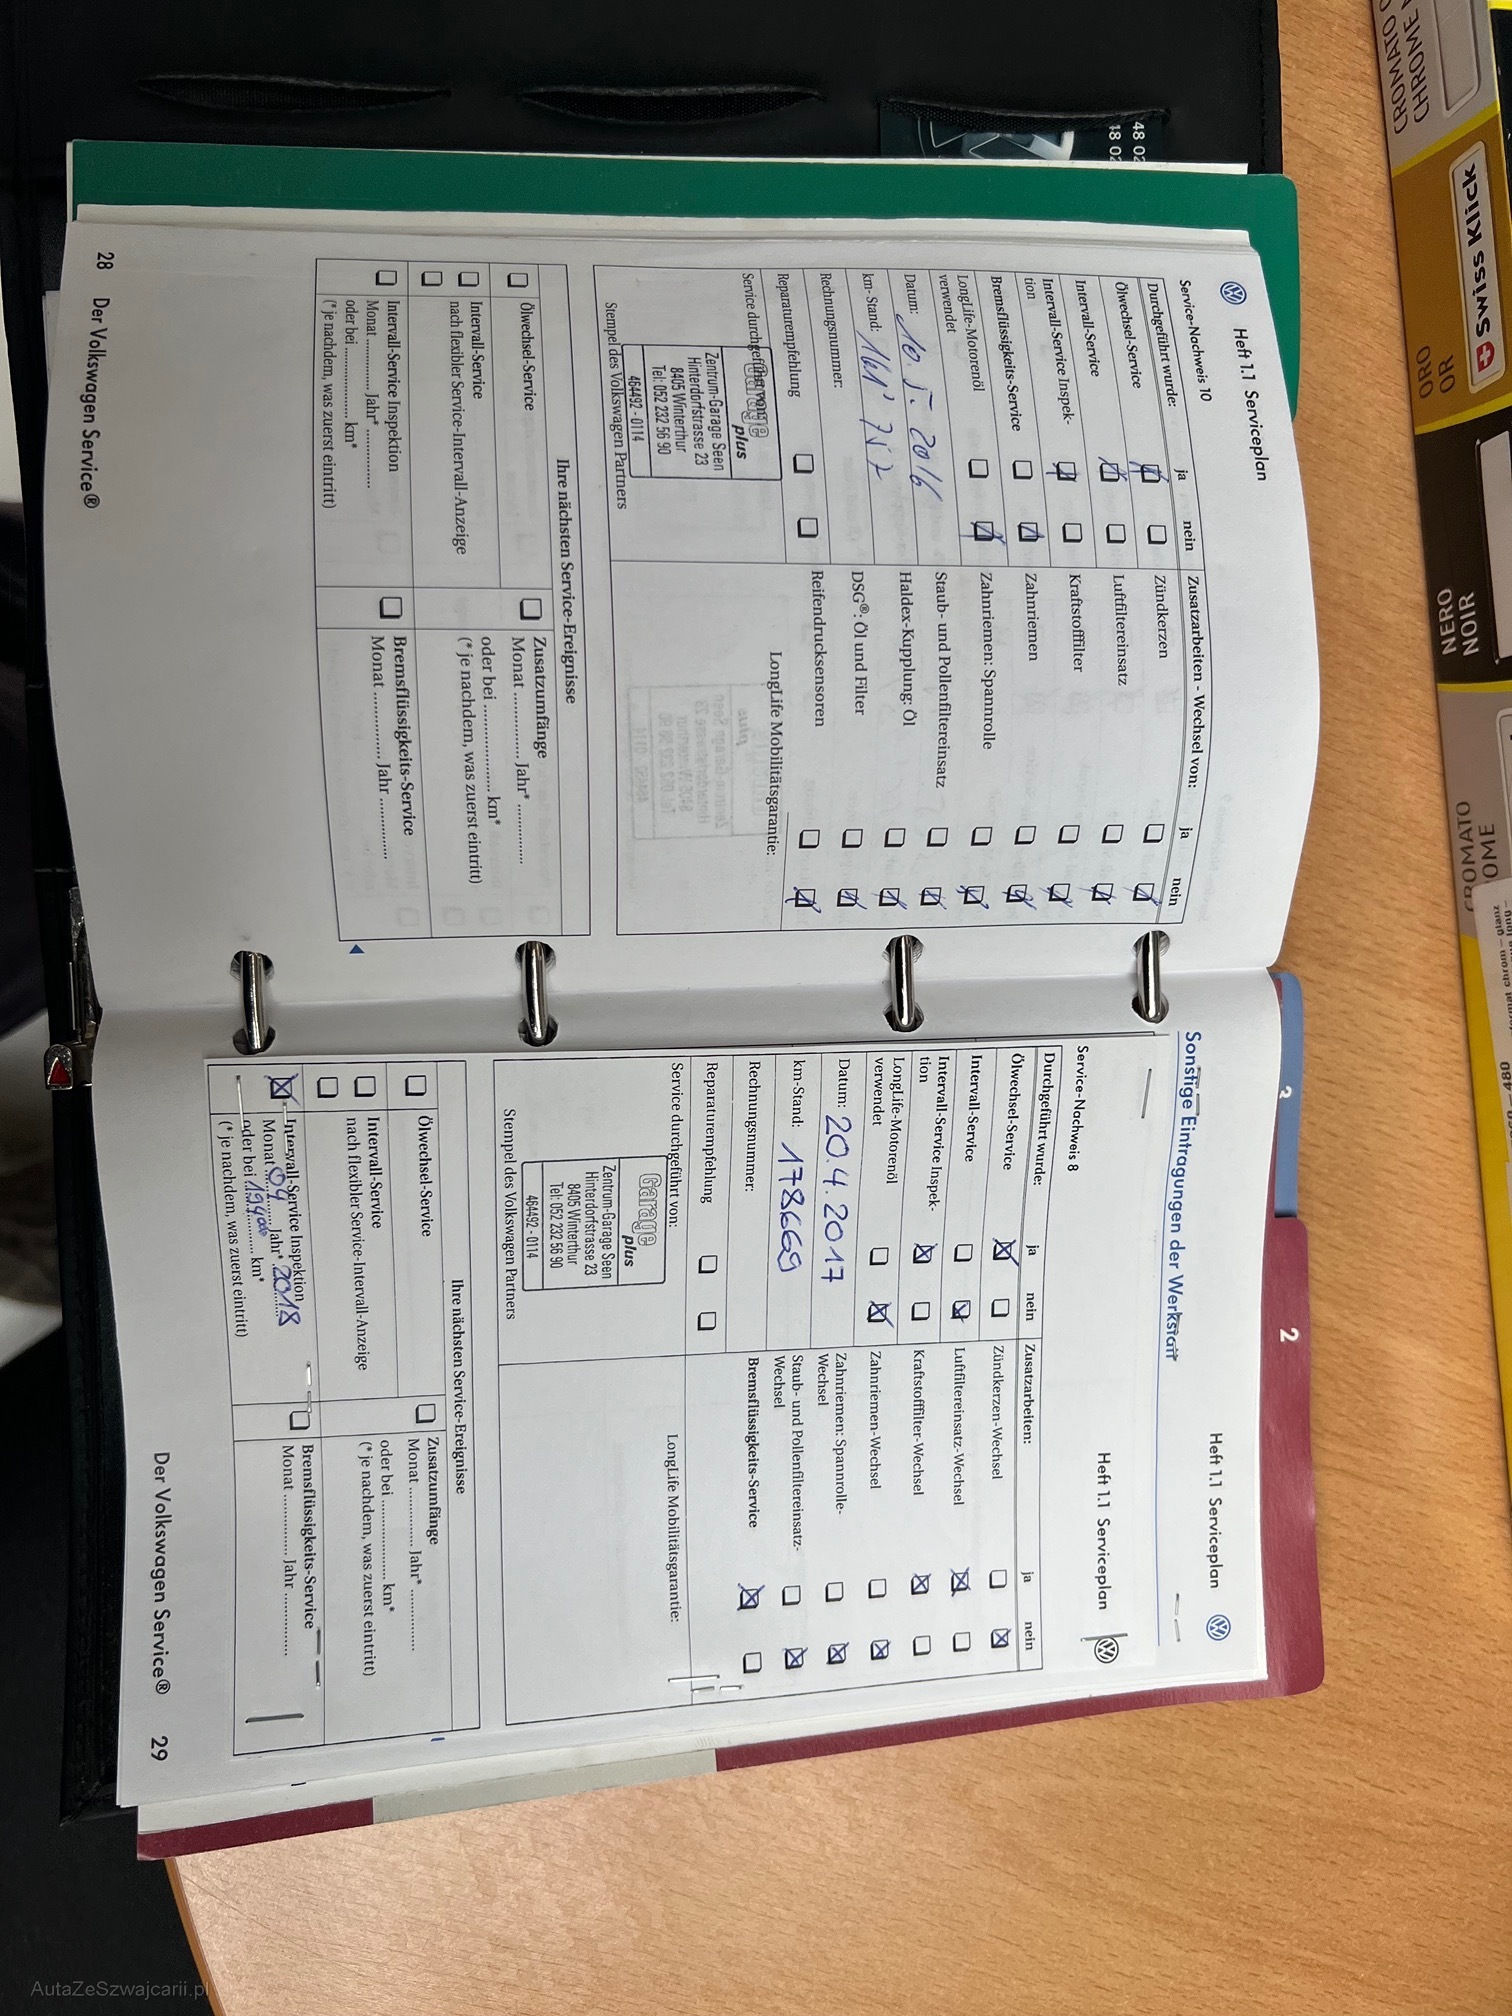 Heft 1.1 Serviceplan
Service-Nachweis 10
Durchgeführt wurde: ja nein
Ölwechsel-Service
Intervall-Service
Intervall-Service Inspek-
tion
Bremsflüssigkeits-Service
LongLife-Motorenöl
verwendet
Datum: 10. 5. 2016
km- Stand: 161' 752
Rechnungsnummer:
Reparaturempfehlung
Service durchgeführt von:
Garage
plus
Zentrum-Garage Seen
Hinterdorfstrasse 23
8405 Winterthur
Tel: 052 232 56 90
464492 - 0114
Stempel des Volkswagen Partners
Zusatzarbeiten - Wechsel von: ja nein
Zündkerzen
Luftfiltereinsatz
Kraftstofffilter
Zahnriemen
Zahnriemen: Spannrolle
Staub- und Pollenfiltereinsatz
Haldex-Kupplung: Öl
DSG®: Öl und Filter
Reifendrucksensoren
LongLife Mobilitätsgarantie:
Ihre nächsten Service-Ereignisse
Ölwechsel-Service
Intervall-Service
nach flexibler Service-Intervall-Anzeige
Intervall-Service Inspektion
Monat ............... Jahr* ...............
oder bei ............... km*
(* je nachdem, was zuerst eintritt)
Zusatzumfänge
Monat ............... Jahr* ...............
oder bei ............... km*
(* je nachdem, was zuerst eintritt)
Bremsflüssigkeits-Service
Monat ............... Jahr ...............
28 Der Volkswagen Service®
Heft 1.1 Serviceplan
Sonstige Eintragungen der Werkstatt
Heft 1.1 Serviceplan
Service-Nachweis 8
Durchgeführt wurde: ja nein
Ölwechsel-Service
Intervall-Service
Intervall-Service Inspek-
tion
LongLife-Motorenöl
verwendet
Datum: 20.4.2017
km-Stand: 178669
Rechnungsnummer:
Reparaturempfehlung
Service durchgeführt von:
Garage
plus
Zentrum-Garage Seen
Hinterdorfstrasse 23
8405 Winterthur
Tel: 052 232 56 90
464492 - 0114
Stempel des Volkswagen Partners
Zusatzarbeiten: ja nein
Zündkerzen-Wechsel
Luftfiltereinsatz-Wechsel
Kraftstofffilter-Wechsel
Zahnriemen-Wechsel
Zahnriemen: Spannrolle-
Wechsel
Staub- und Pollenfiltereinsatz-
Wechsel
Bremsflüssigkeits-Service
LongLife Mobilitätsgarantie:
Ihre nächsten Service-Ereignisse
Ölwechsel-Service
Intervall-Service
nach flexibler Service-Intervall-Anzeige
Intervall-Service Inspektion
Monat 04 Jahr* 2018
oder bei km*
(* je nachdem, was zuerst eintritt)
Zusatzumfänge
Monat ............... Jahr* ...............
oder bei ............... km*
(* je nachdem, was zuerst eintritt)
Bremsflüssigkeits-Service
Monat ............... Jahr ...............
Der Volkswagen Service® 29
2
48 02
48 02
CHROME
Swiss Klick
ORO
OR
NERO
NOIR
CROMATO
AutaZeSzwajcarii.pl